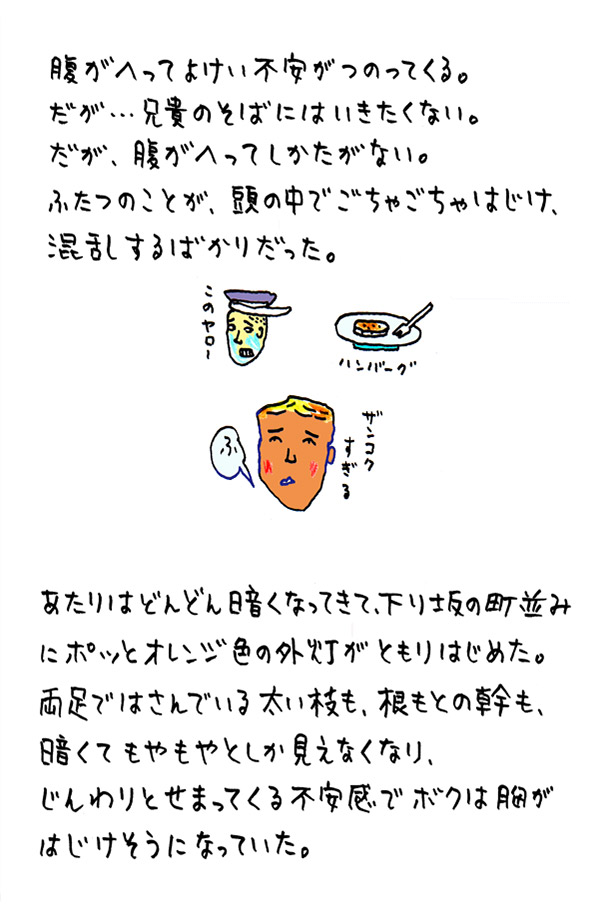 腹がへってよけい不安がつのってくる。
だが…兄貴のそばにはいきたくない。
だが、腹がへってしかたがない。
ふたつのことが、頭の中でごちゃごちゃはじけ、
混乱するばかりだった。
このヤロー
ハンバーグ
ザンコク
すぎる
ふ
あたりはどんどん暗くなってきて、下り坂の町並み
にポッとオレンジ色の外灯がともりはじめた。
両足ではさんでいる太い枝も、根もとの幹も、
暗くてもやもやとしか見えなくなり、
じんわりとせまってくる不安感でボクは胸が
はじけそうになっていた。